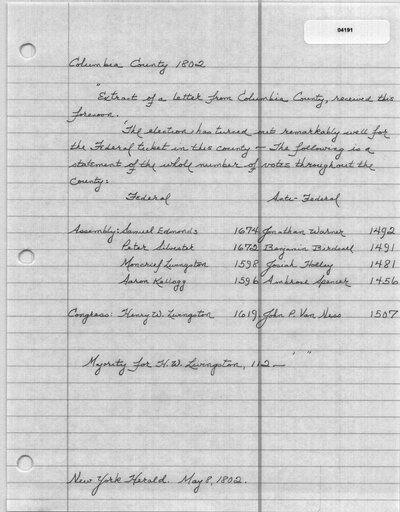 04191
Columbia County 1802
"Extract of a letter from Columbia County, received this
forenoon.
'The election has turned out remarkably well for
the Federal ticket in this county — The following is a
statement of the whole number of votes throughout the
County:
Federal Anti-Federal
Assembly: Samuel Edmonds 1674 Jonathan Warner 1492
Peter Silvester 1672 Benjamin Birdsall 1491
Moncrief Livingston 1598 Josiah Holley 1481
Aaron Kellogg 1596 Ambrose Spencer 1456
Congress: Henry W. Livingston 1619 John P. Van Ness 1507
Majority for H. W. Livingston, 112 — ' "
New York Herald. May 8, 1802.